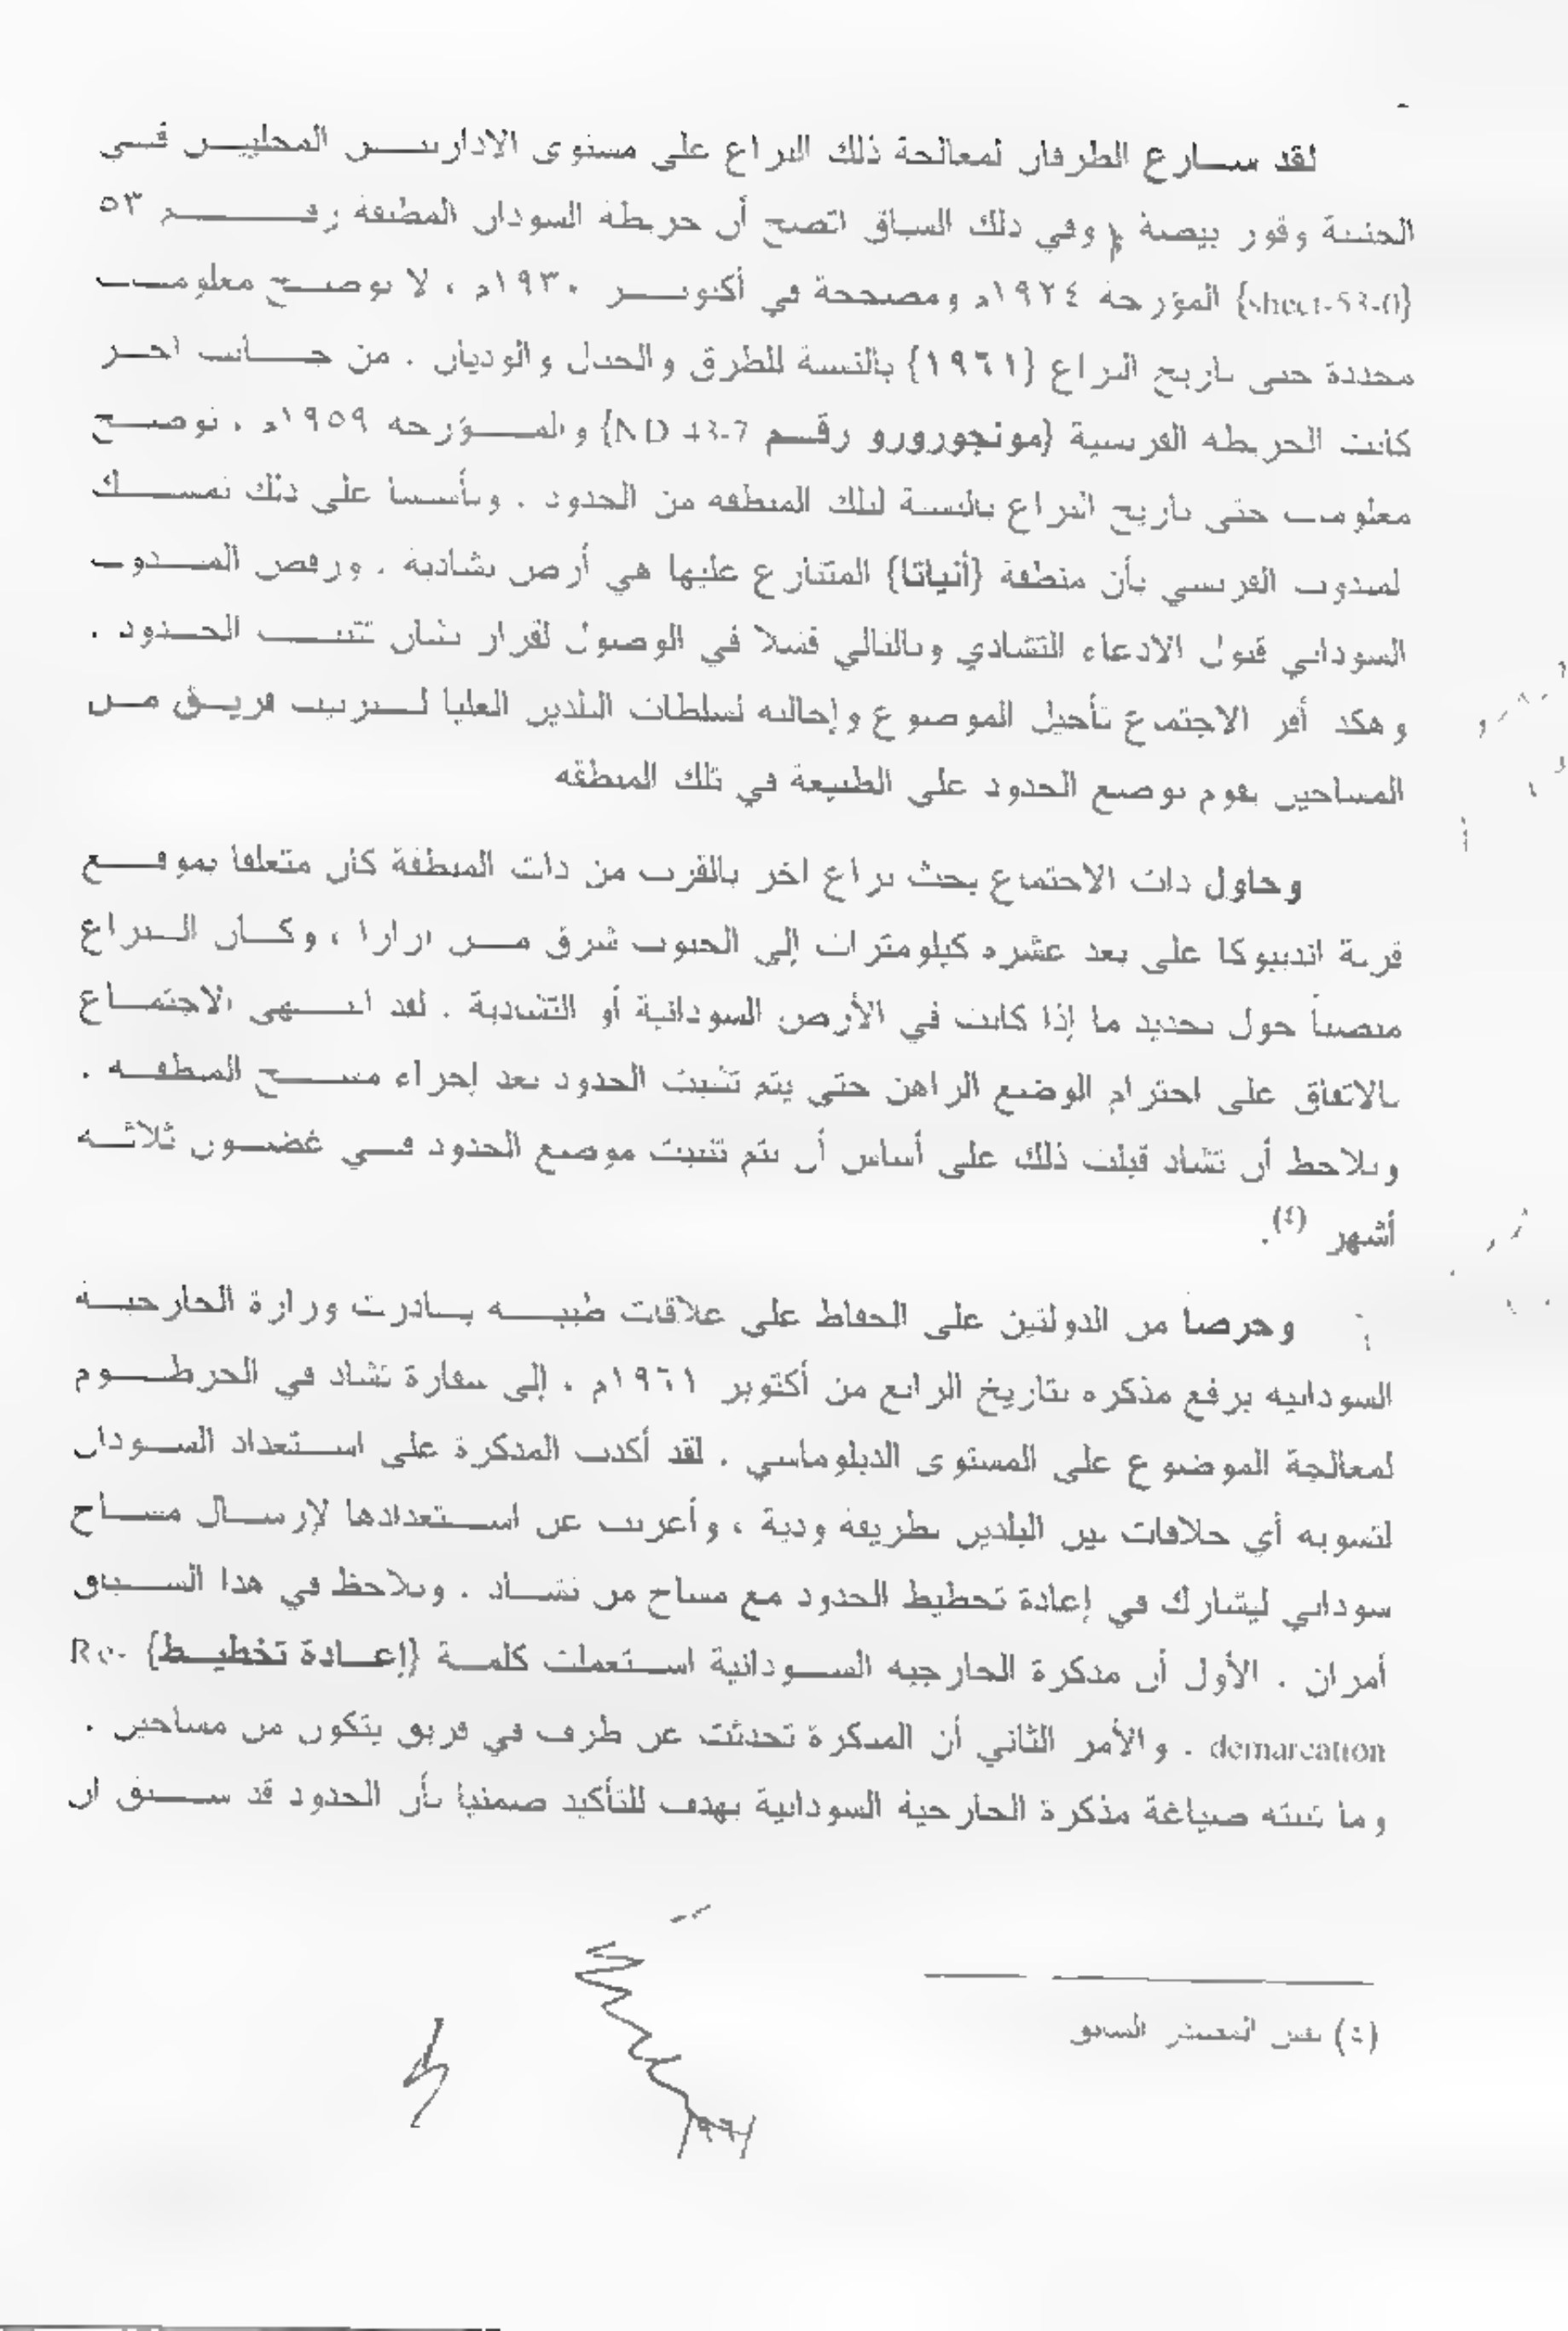 لقد سـارع الطرفان لمعالجة ذلك النزاع على مستوى الاداريـين المحليـين فـي
الجنينة وقور بيضة وفي ذلك السياق اتضح أن خريطة السودان المطبقة رقـــم ٥٣
{sheet-53-0} المؤرخة ١٩٢٤م ومصححة في أكتوبـر ١٩٣٠م ، لا توضـح معلومـات
محددة حتى تاريخ النزاع {١٩٦١} بالنسبة للطرق والجبال والوديان . من جـانب اخـر
كانت الخريطه الفرنسية {مونجورورو رقـم ND 43-7} والمـؤرخه ١٩٥٩م ، توضـح
معلومات حتى تاريخ النزاع بالنسبة لتلك المنطقه من الحدود . وتأسيسا على ذلك تمسـك
لمندوب الفرنسي بأن منطقة {أنياتا} المتنازع عليها هي أرض تشادية . ورفض المنـدوب
السوداني قبول الادعاء التشادي وبالتالي فشلا في الوصول لقرار بشأن تثبيـت الحـدود .
وهكذ أقر الاجتماع تأجيل الموضوع وإحالته لسلطات البلدين العليا لـترتيب فريـق مـن
المساحين يقوم بوضع الحدود على الطبيعة في تلك المنطقه
وحاول ذات الاجتماع بحث نزاع اخر بالقرب من ذات المنطقة كان متعلقا بموقـع
قرية انديبوكا على بعد عشره كيلومترات إلى الجنوب شرق مـن ارارا ، وكـان الـنزاع
منصباً حول تحديد ما إذا كانت في الأرض السودانية أو التشادية . لقد انتـهى الاجتمـاع
بالاتفاق على احترام الوضع الراهن حتى يتم تثبيت الحدود بعد إجراء مسـح المنطقـه .
ويلاحظ أن تشاد قبلت ذلك على أساس أن يتم تثبيت موضع الحدود فـي غضـون ثلاثـه
أشهر (٤).
وحرصا من الدولتين على الحفاظ على علاقات طيبـه بـادرت وزارة الخارجيـة
السودانيه برفع مذكره بتاريخ الرابع من أكتوبر ١٩٦١م ، إلى سفارة تشاد في الخرطـوم
لمعالجة الموضوع على المستوى الدبلوماسي . لقد أكدت المذكرة على اسـتعداد السـودان
لتسويه أي خلافات بين البلدين بطريقة ودية ، وأعربت عن اسـتعدادها لإرسـال مسـاح
سوداني ليشارك في إعادة تخطيط الحدود مع مساح من تشـاد . ويلاحظ في هذا السـياق
أمران . الأول أن مذكرة الخارجيه السـودانية اسـتعملت كلمـة {إعـادة تخطيـط} Re-
demarcation . والأمر الثاني أن المذكرة تحدثت عن طرف في فريق يتكون من مساحين .
وما تبنته صياغة مذكرة الخارجية السودانية يهدف للتأكيد ضمنيا بأن الحدود قد سـبق ان
(٤) نفس المصدر السابق